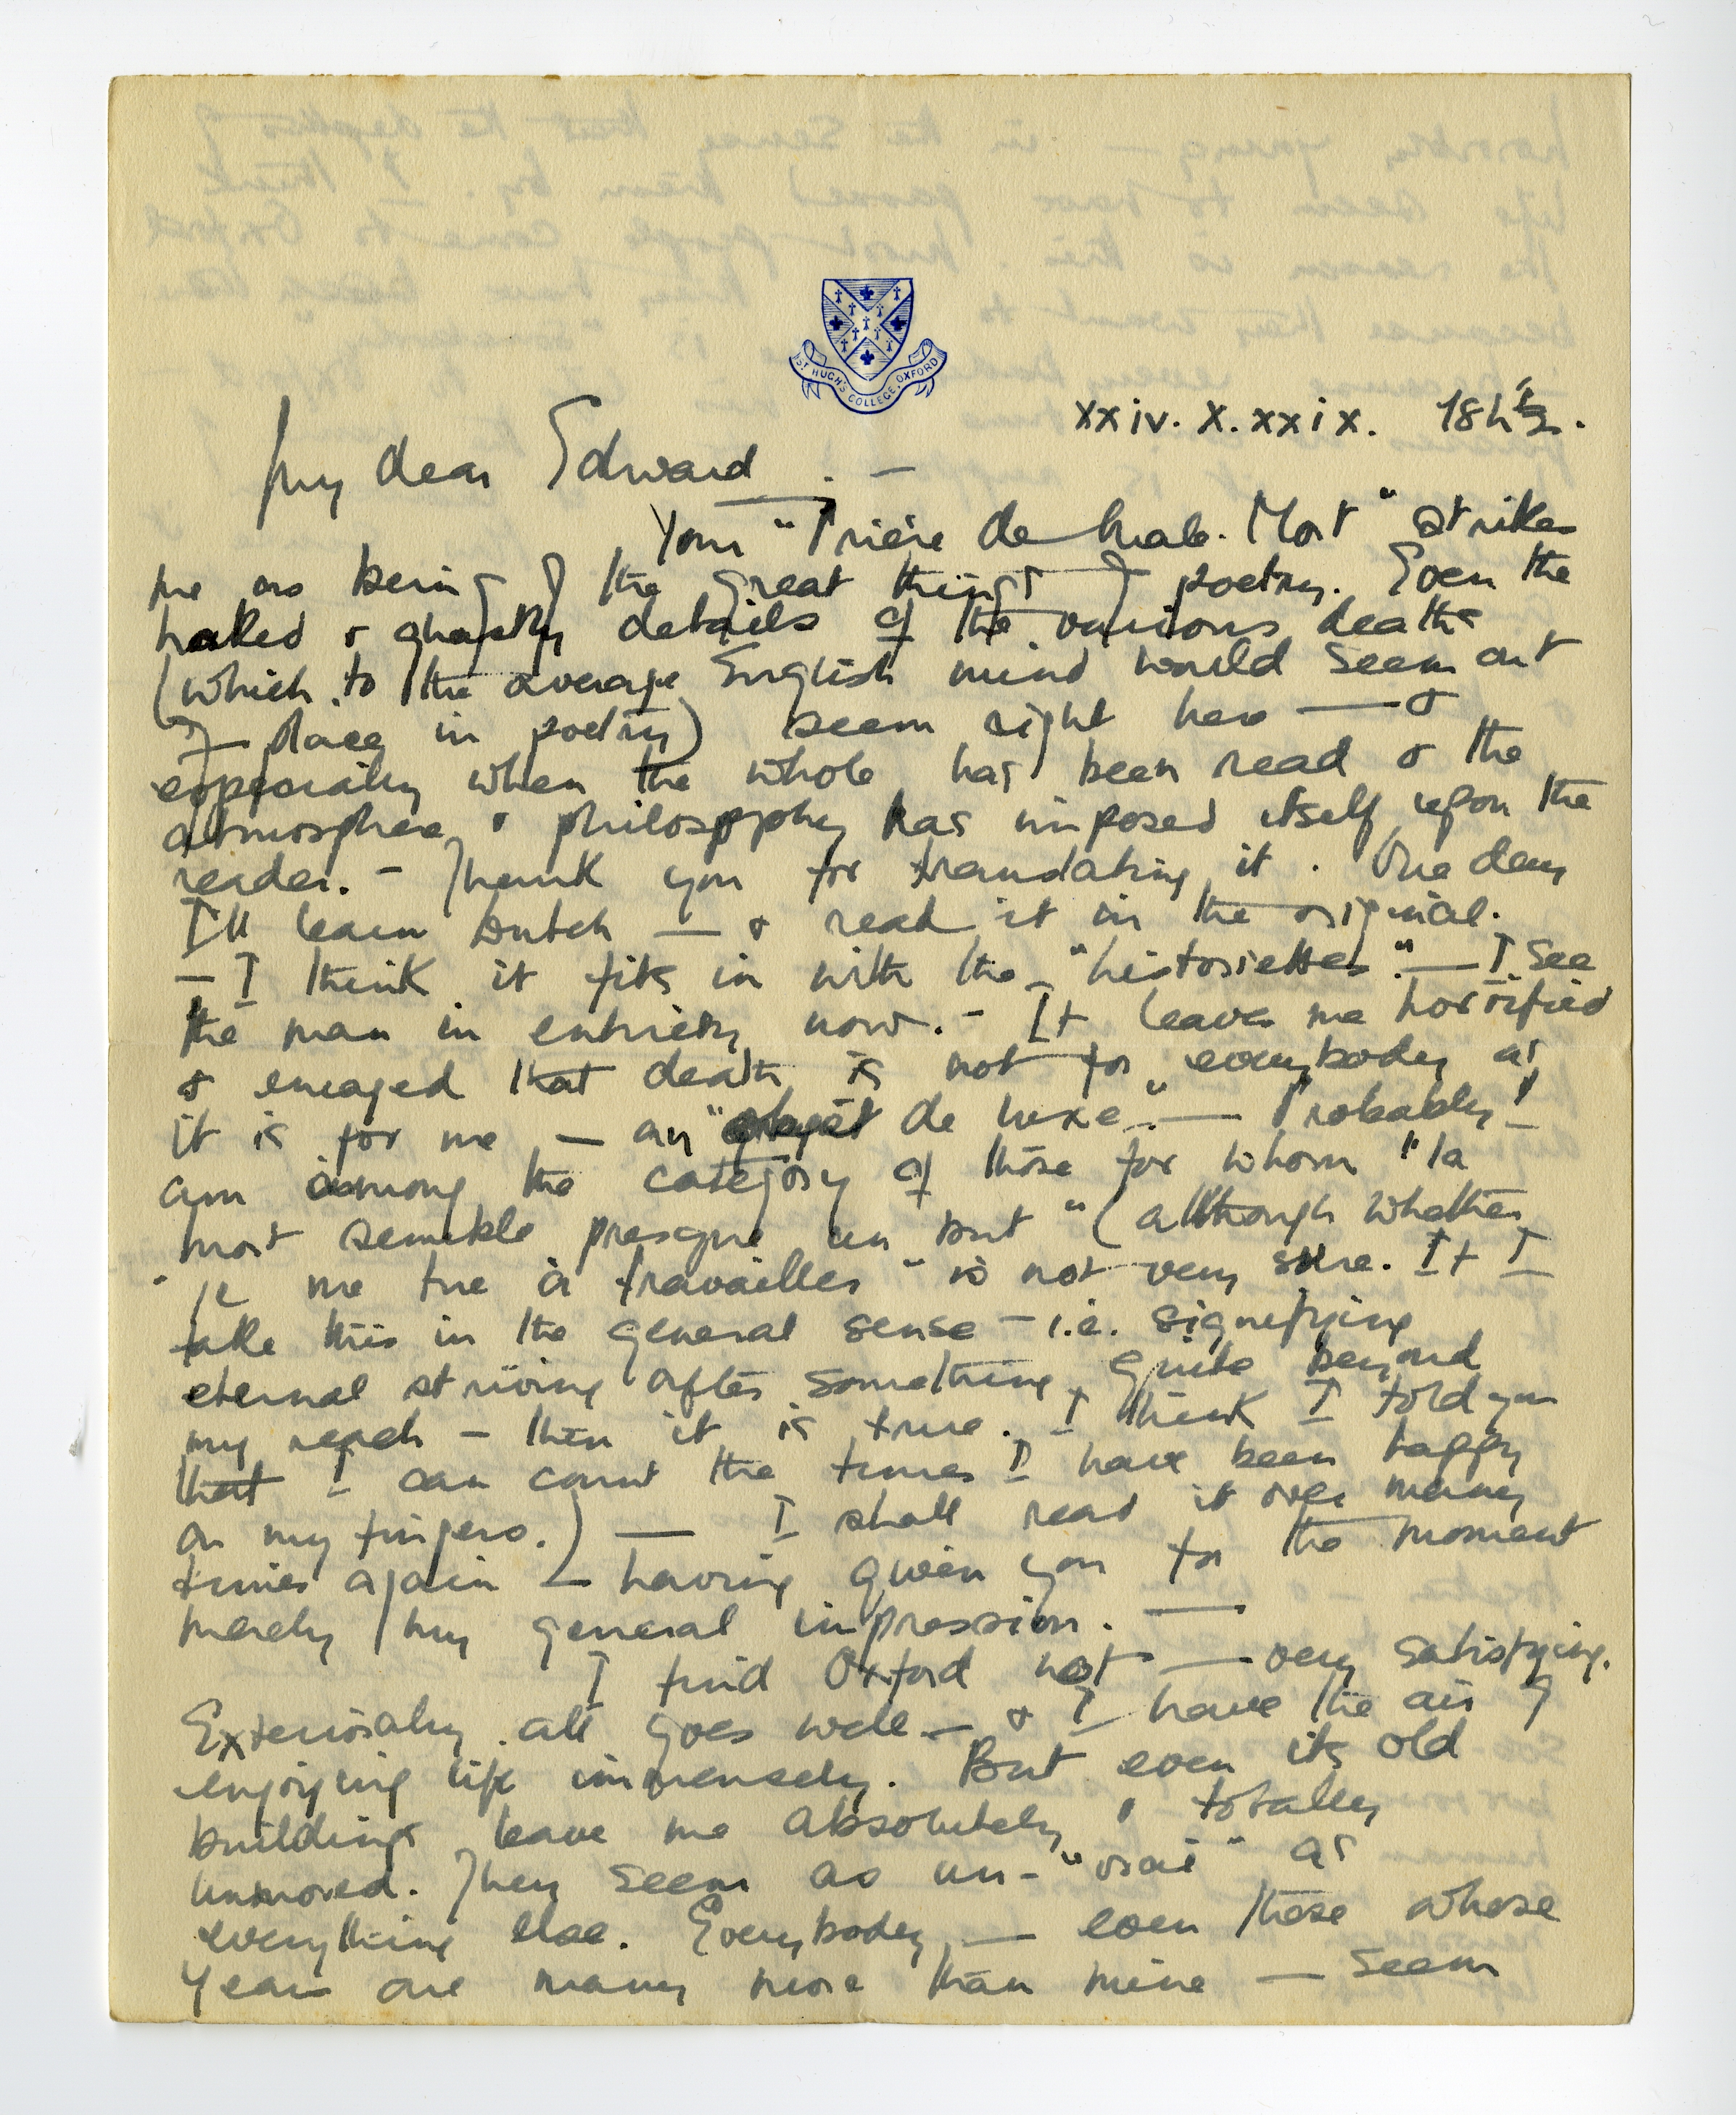 ST HUGH'S COLLEGE, OXFORD
xxiv. X. xxix. 18h½.
My dear Edward . —
Your "Prière de Male Mort" strikes
me as being of the great things of poetry. Even the
naked & ghastly details of the various deaths
(which to the average English mind would seem out
of place in poetry) seem right here — &
especially when the whole has been read & the
atmosphere & philosophy has imposed itself upon the
reader. - Thank you for translating it. One day
I'll learn Dutch — & read it in the original.
— I think it fits in with the "historiettes". — I see
the man in entirety now. - It leaves me horrified
& enraged that death is not for everybody as
it is for me — an "objet de luxe". — Probably I
am among the category of those for whom "la
mort semble presque un but" (although whether
"je me tue à travailler" is not very sure. If I
take this in the general sense - i.e. signifying
eternal striving after something quite beyond
my reach - then it is true. I think I told you
that I can count the times I have been happy
on my fingers.) — I shall read it over many
times again — having given you for the moment
merely my general impression. —
I find Oxford not — very satisfying.
Exteriorly all goes well — & I have the air of
enjoying life immensely. But even its old
buildings leave me absolutely & totally
unmoved. They seem as un-"vrai" as
everything else. Everybody — even those whose
years are many more than mine — seem